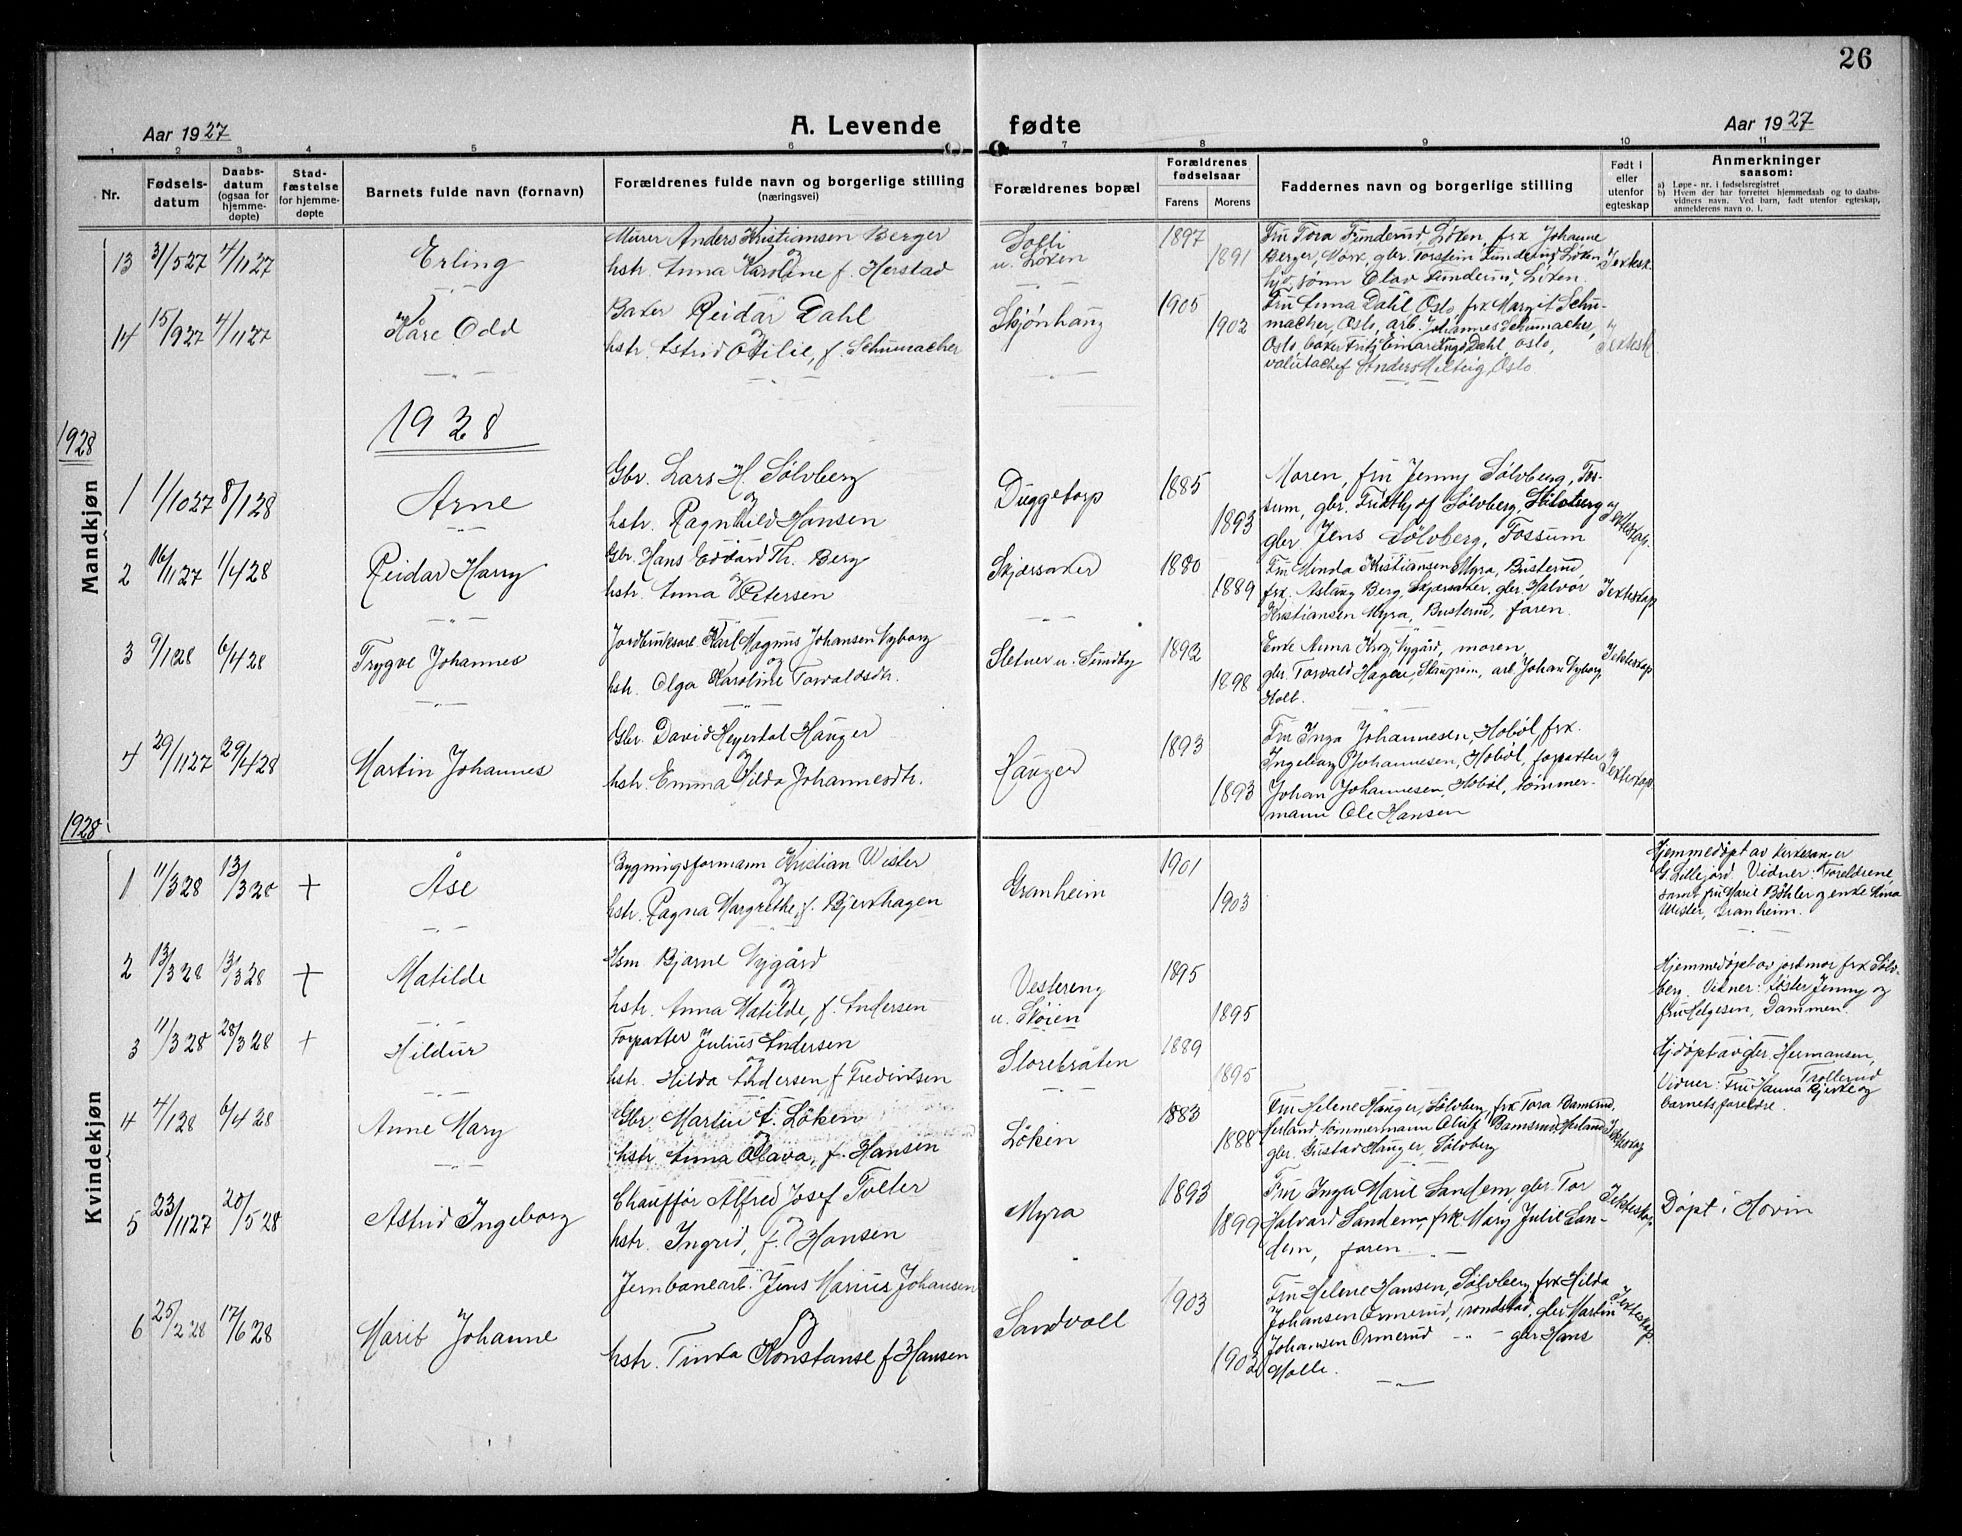 26
Aar 1927
A. Levende fødte
Aar 1927
1 2 3 4 5 6 7 8 9 10 11
Nr.
Fødsels-
datum
Daabs-
datum
(ogsaa for
hjemme-
døpte)
Stad-
fæstelse
for hjemme-
døpte
Barnets fulde navn (fornavn)
Forældrenes fulde navn og borgerlige stilling
(næringsvei)
Forældrenes bopæl
Forældrenes
fødselsaar
Farens Morens
Faddernes navn og borgerlige stilling
Født i
eller
utenfor
egteskap
Anmerkninger
saasom:
a) Løpe-nr. i fødselsregistret
b) Hvem der har forrettet hjemmedaab og to daabs-
vidners navn. Ved barn, født utenfor egteskap,
anmelderens navn o. l.
Mandkjøn
13 31/5 27 4/11 27 Erling
Murer Anders Kristiansen Berger
og
hstr. Anna Karoline f. Herstad
Solli
u. Løken
1897
1891
Fru Tora Funderud, Løken, frk Johanne
Berger, gbr. Torstein Funderud, Løken
sønn Olav Funderud, Løken.
14 15/9 27 4/11 27 Kåre Odd
Baker Reidar Dahl
og
hstr. Astrid Otilie, f. Schumacher
Skjønhaug
1905
1902
Fru Anna Dahl, Oslo, frk Margit Schu-
macher, Oslo, arb. Johannes Schumacher,
Oslo, baker Fritz Einar Dahl Oslo,
valutachef Anders Oslo
1928
1928
1 1/10 27 8/1 28 Arne
Gbr. Lars H. Sølvberg
og
hstr. Ragnhild Hansen
Duggetorp
1885
1893
Moren, fru Jenny Sølvberg, Fos-
sum, gbr. Fridthjof Sølvberg, Sølvberg
gbr Jens Sølvberg, Fossum
2 16/11 27 1/4 28 Reidar Harry
Gbr. Hans Edvard Th. Berg
og
hstr. Anna Petersen
Skjærsaker
1880
1889
Fru Minda Kristiansen Myra, Busterud
frk. Aslaug Berg, Skjærsaker, gbr. Halvor
Kristiansen Myra, Busterud, faren.
3 9/1 28 6/4 28 Trygve Johannes
Jordbruksarb. Karl Magnus Johansen Nyborg
og
hstr. Olga Karoline Torvaldsdtr.
Sletner u. Sundby
1892
1898
Enke Anna Nygård, moren,
gbr. Torvald Hagen, arb. Johan Nyborg,
4 29/11 27 29/4 28 Martin Johannes
Gbr. David Heyerdal Hauger
og
hstr. Emma Hilda Johannesdtr.
Hauger
1893
1893
Fru Inga Johannesen, Hobøl, frk.
Ingeborg Johannesen, Hobøl, forpakter
Johan Johannesen, Hobøl, tømmer-
mann Ole Hansen
1928
Kvindekjøn
1 11/3 28 13/3 28 + Åse
Bygningsformann Kristian Wister
og
hstr. Ragna Margrethe, f. Bjerkhagen
Granheim
1901
1903
Hjemmedøpt av kirkesanger
G. Lillejord Vidner: Foreldrene,
samt fru Marie Bøhler og enke
Wister, Granheim.
2 13/3 28 13/3 28 + Matilde
Hsm. Bjarne Nygård
og
hstr. Anna Matilde, f. Andersen
Vestereng
u. Skøien
1895
1895
Hjemmedøpt av jordmor frk Sølv-
berg, Vidner: søster Jenny og
fru Helgesen, Dammen.
3 11/3 28 28/3 28 + Hildur
Forpakter Julius Andersen
og
hstr. Hilda Andersen f Fredriksen
Storebråten
1889
1895
Hjdøpt av gbr. Hermansen,
Trollerud
Vidner: Fru Hanna Bjerke og
barnets foreldre.
4 4/1 28 6/4 28 Anne Mary
Gbr. Martin A. Løken
og
hstr. Anna Olava, f. Hansen
Løken
1883
1888
Fru Helene Hauger, Sølvberg, frk Tora Bamsrud,
Herland tømmermann Bamsrud, Herland
gbr. Gustad Hauger, Sølvberg
5 23/11 27 20/5 28 Astrid Ingeborg
Chauffør Alfred Josef Tveter
og
hstr. Ingrid, f. Hansen
Myra
1893
1899
Fru Inga Marie Sandem, gbr. Tor
Halvard Sandem, frk Mary Julie San-
dem, faren.
Ekteskap
Døpt i Hovin
6 25/2 28 17/6 28 Marit Johanne
Jernbanearb. Jens Marius Johansen
og
hstr. Tinda Konstanse f Hansen
Sandvoll
1903
1902
Fru Helene Hansen, Sølvberg, frk Hilda
Johansen Ormerud, Trøndstad, gbr Martin
Johansen Ormerud — " — gbr Hans
Molle.